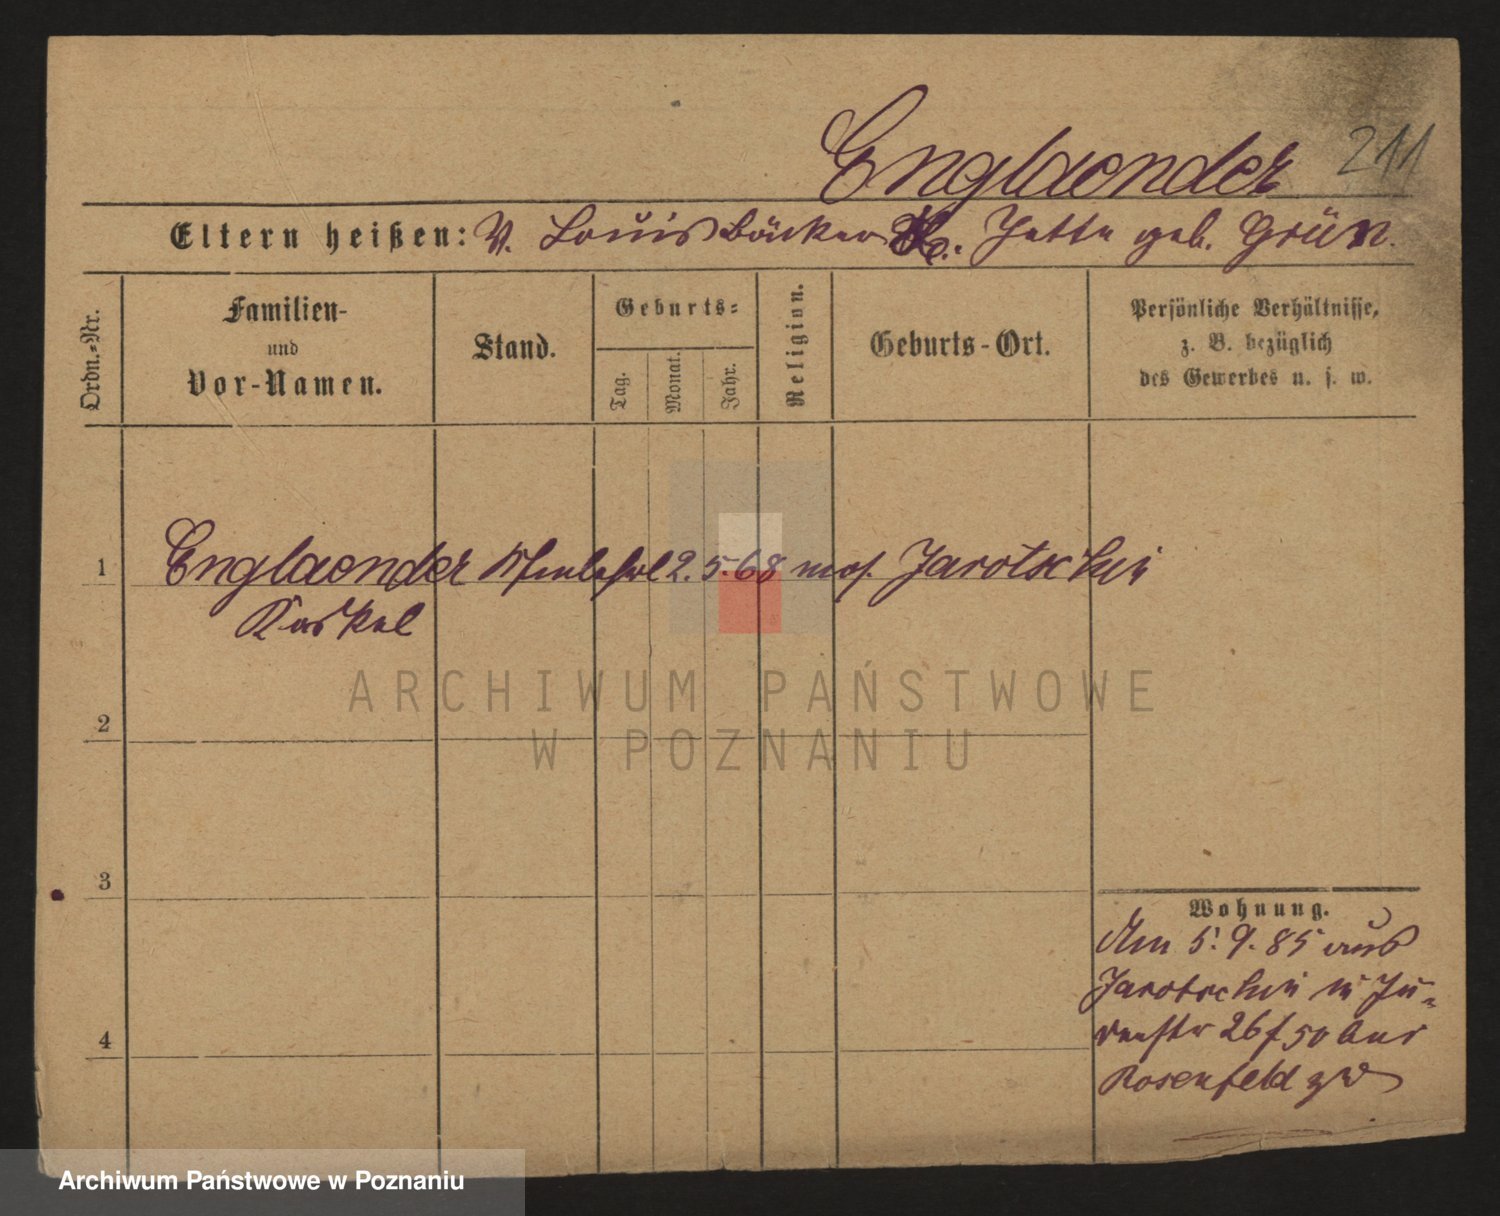 Englaender 211
Eltern heißen: V. Louis Bäcker M. Jette geb. Grün.
Ordn.-Nr.
Familien-
und
Vor-Namen.
Stand.
Geburts-
Tag.
Monat.
Jahr.
Religion.
Geburts-Ort.
Persönliche Verhältnisse,
z. B. bezüglich
des Gewerbes u. s. w.
1 Englaender 2. 5. 68 mos. Jarotschin
Kaskel
ARCHIWUM PAŃSTWOWE
W POZNANIU
2
3
4
Wohnung.
Am 5. 9. 85 aus
Jarotschin in Ju-
denstr 26 f 50 bei
Rosenfeld
Archiwum Państwowe w Poznaniu